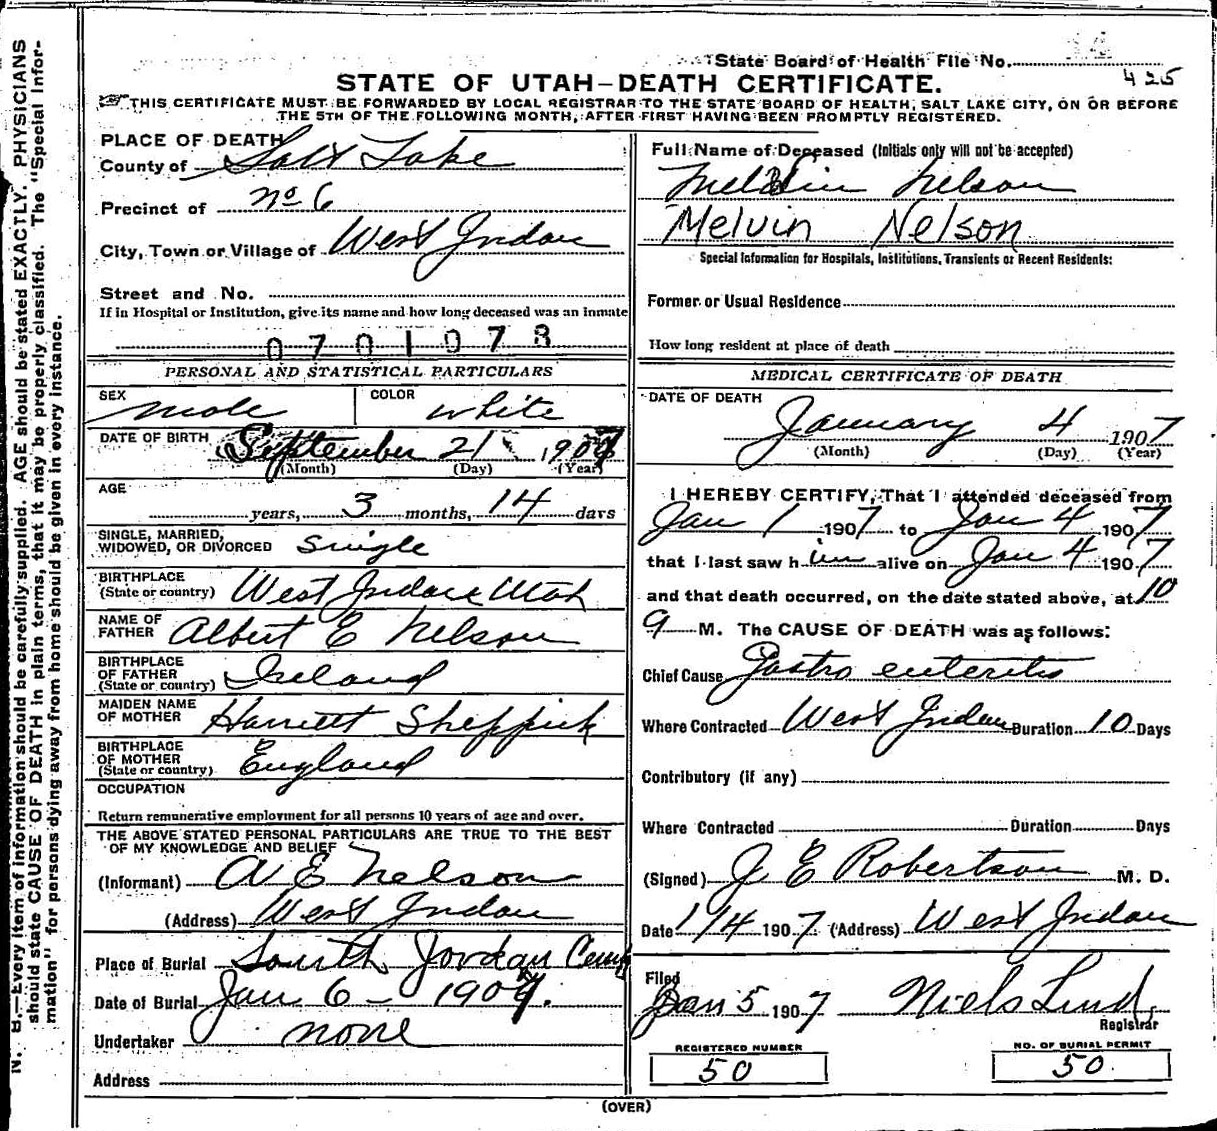 State Board of Health File No.
425
STATE OF UTAH—DEATH CERTIFICATE.
THIS CERTIFICATE MUST BE FORWARDED BY LOCAL REGISTRAR TO THE STATE BOARD OF HEALTH, SALT LAKE CITY, ON OR BEFORE
THE 5TH OF THE FOLLOWING MONTH, AFTER FIRST HAVING BEEN PROMPTLY REGISTERED.
PLACE OF DEATH
County of Salt Lake
Precinct of No 6
City, Town or Village of West Jordan
Street and No.
If in Hospital or Institution, give its name and how long deceased was an inmate
0701073
PERSONAL AND STATISTICAL PARTICULARS
SEX male COLOR white
DATE OF BIRTH September 21 190
(Month) (Day) (Year)
AGE
years, 3 months, 14 days
SINGLE, MARRIED,
WIDOWED, OR DIVORCED single
BIRTHPLACE
(State or country) West Jordan Utah
NAME OF
FATHER Albert E Nelson
BIRTHPLACE
OF FATHER
(State or country) Ireland
MAIDEN NAME
OF MOTHER Harriett Sheppick
BIRTHPLACE
OF MOTHER
(State or country) England
OCCUPATION
Return remunerative employment for all persons 10 years of age and over.
THE ABOVE STATED PERSONAL PARTICULARS ARE TRUE TO THE BEST
OF MY KNOWLEDGE AND BELIEF
(Informant) A E Nelson
(Address) West Jordan
Place of Burial South Jordan Cem
Date of Burial Jan 6 - 1907.
Undertaker none
Address
Full Name of Deceased (Initials only will not be accepted)
Melvin Nelson
Melvin Nelson
Special Information for Hospitals, Institutions, Transients or Recent Residents:
Former or Usual Residence
How long resident at place of death
MEDICAL CERTIFICATE OF DEATH
DATE OF DEATH
January 4 1907
(Month) (Day) (Year)
I HEREBY CERTIFY, That I attended deceased from
Jan 1 1907 to Jan 4 1907
that I last saw him alive on Jan 4 1907
and that death occurred, on the date stated above, at 10
a M. The CAUSE OF DEATH was as follows:
Chief Cause Gastro enteritis
Where Contracted West Jordan Duration 10 Days
Contributory (if any)
Where Contracted Duration Days
(Signed) J E Robertson M. D.
Date 1/4 1907. (Address) West Jordan
Filed
Jan 5 1907 Niels Lind,
Registrar
REGISTERED NUMBER
50
NO. OF BURIAL PERMIT
50.
(OVER)
N. B.—Every item of information should be carefully supplied. AGE should be stated EXACTLY. PHYSICIANS
should state CAUSE OF DEATH in plain terms, that it may be properly classified. The "Special Infor-
mation" for persons dying away from home should be given in every instance.